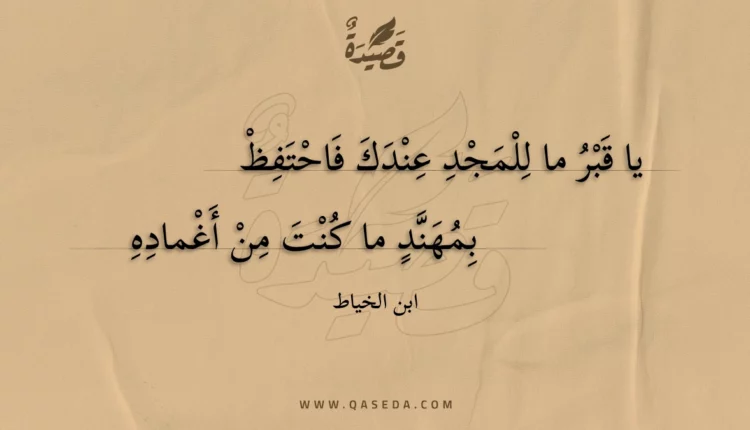 قَصِيدَةٌ
يا قَبْرُ ما لِلْمَجْدِ عِنْدَكَ فَاحْتَفِظْ
بِمُهَنَّدٍ ما كُنْتَ مِنْ أَغْمادِهِ
ابن الخياط
WWW.QASEDA.COM